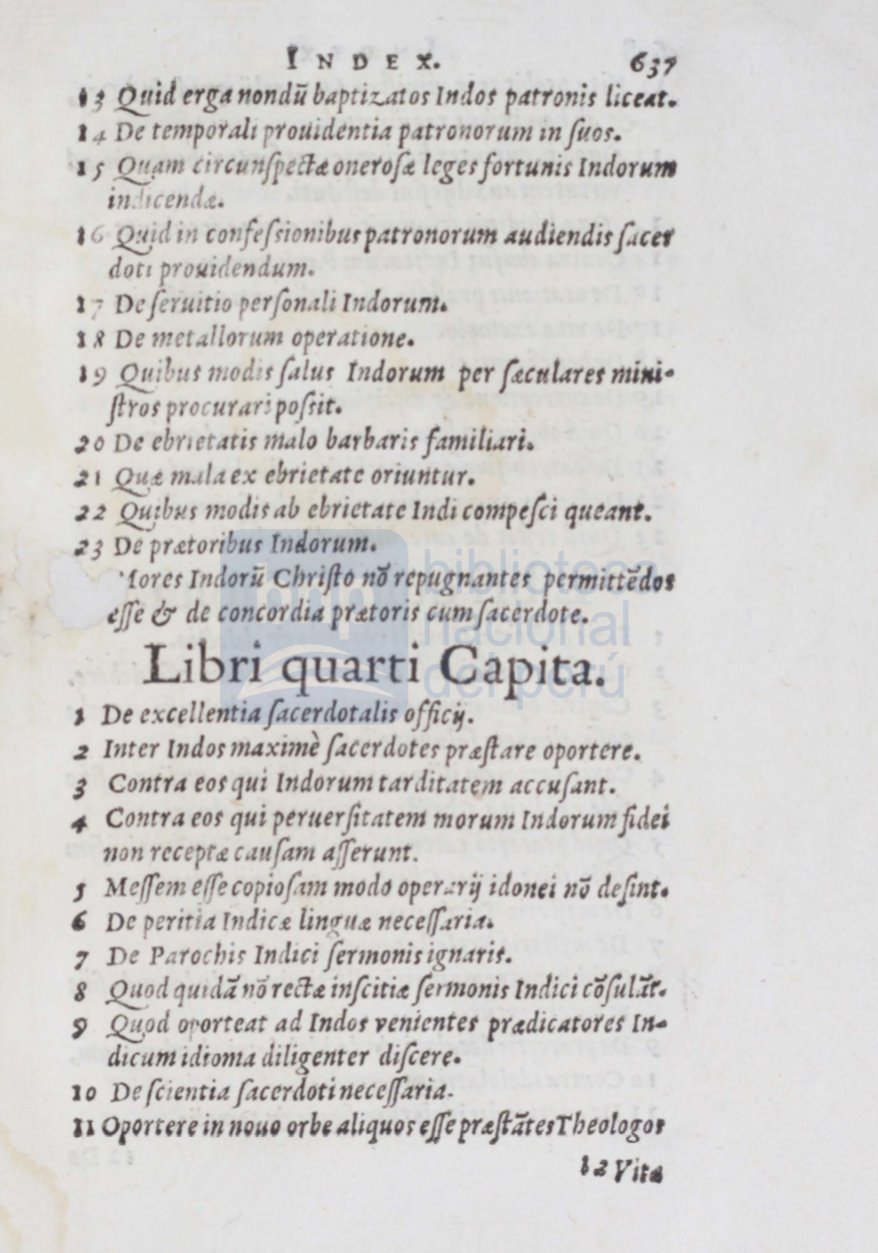 INDEX. 637
13 Quid erga nondū baptizatos Indos patronis liceat.
14 De temporali prouidentia patronorum in ſuos.
15 Quam circunſpectæ oneroſæ leges fortunis Indorum
indicendæ.
16 Quid in confeſsionibus patronorum audiendis ſacer
doti prouidendum.
17 De ſeruitio perſonali Indorum.
18 De metallorum operatione.
19 Quibus modis ſalus Indorum per ſæculares mini-
ſtros procurari poſsit.
20 De ebrietatis malo barbaris familiari.
21 Quæ mala ex ebrietate oriuntur.
22 Quibus modis ab ebrietate Indi compeſci queant.
23 De prætoribus Indorum.
Mores Indorū Chriſto nō repugnantes permittēdos
eſſe & de concordia prætoris cum ſacerdote.
Libri quarti Capita.
1 De excellentia ſacerdotalis officij.
2 Inter Indos maximè ſacerdotes præſtare oportere.
3 Contra eos qui Indorum tarditatem accuſant.
4 Contra eos qui peruerſitatem morum Indorum fidei
non receptæ cauſam aſſerunt.
5 Meſſem eſſe copioſam modo operarij idonei nō deſint.
6 De peritia Indicæ linguæ neceſſaria.
7 De Parochis Indici ſermonis ignaris.
8 Quod quidā nō rectæ inſcitiæ ſermonis Indici cōſulāt.
9 Quod oporteat ad Indos venientes prædicatores In-
dicum idioma diligenter diſcere.
10 De ſcientia ſacerdoti neceſſaria.
11 Oportere in nouo orbe aliquos eſſe præſtātes Theologos
12 Vita
biblioteca
nacional
del perú